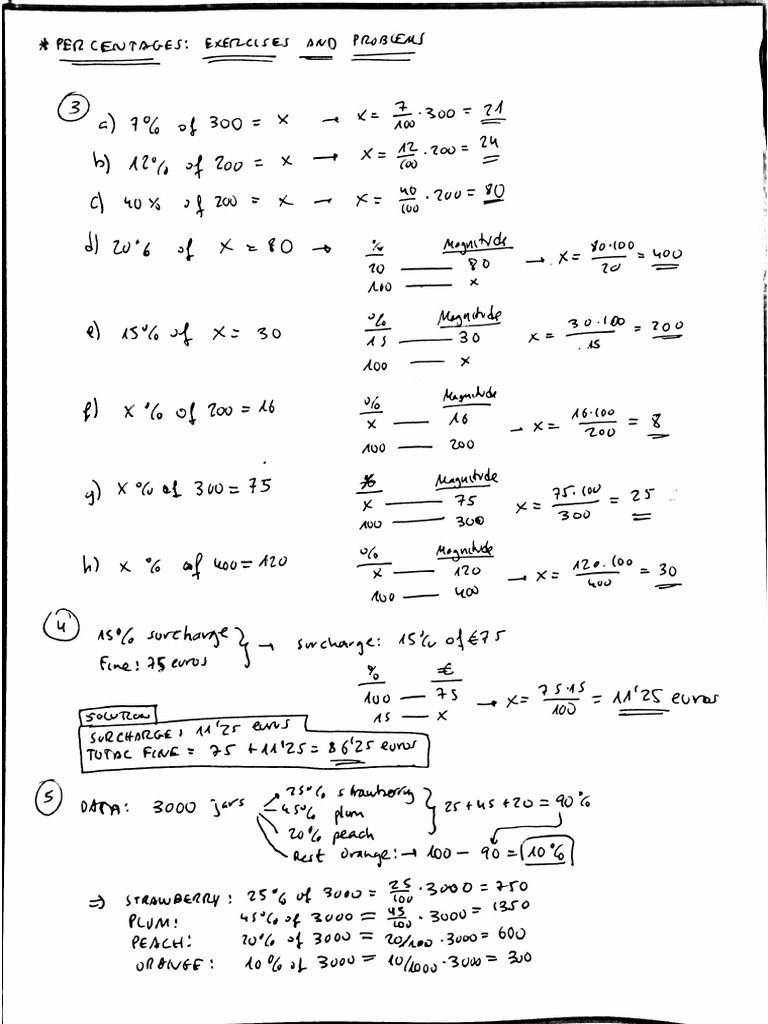 * PERCENTAGES: EXERCISES AND PROBLEMS
③ a) 7% of 300 = x → x = 7/100 · 300 = 21
b) 12% of 200 = x → x = 12/100 · 200 = 24
c) 40% of 200 = x → x = 40/100 · 200 = 80
d) 20% of x = 80 → % Magnitude
20 — 80 → x = 80·100/20 = 400
100 — x
e) 15% of x = 30 % Magnitude
15 — 30 x = 30·100/15 = 200
100 — x
f) x % of 200 = 16 % Magnitude
x — 16 → x = 16·100/200 = 8
100 — 200
g) x % of 300 = 75 % Magnitude
x — 75 x = 75·100/300 = 25
100 — 300
h) x % of 400 = 120 % Magnitude
x — 120 → x = 120·100/400 = 30
100 — 400
④ 15% surcharge
Fine: 75 euros } → surcharge: 15% of €75
% €
100 — 75 → x = 75·15/100 = 11'25 euros
15 — x
SOLUTION
SURCHARGE: 11'25 euros
TOTAL FINE = 75 + 11'25 = 86'25 euros
⑤ DATA: 3000 jars
25% strawberry
45% plum } 25 + 45 + 20 = 90%
20% peach
Rest orange: → 100 - 90 = 10%
⇒ STRAWBERRY: 25% of 3000 = 25/100 · 3000 = 750
PLUM: 45% of 3000 = 45/100 · 3000 = 1350
PEACH: 20% of 3000 = 20/100 · 3000 = 600
ORANGE: 10% of 3000 = 10/1000 · 3000 = 300